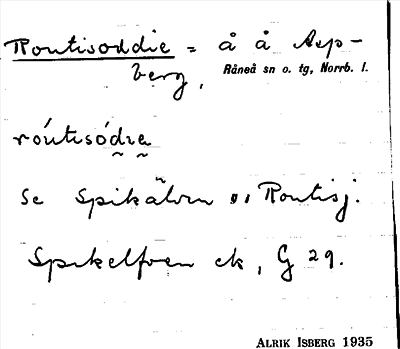 Routisoddie = å å Asp-
berg, Råneå sn o. tg, Norrb. l.
róutisódie
Se Spikälven o, Routisj.
Spikelfven ek, G 29.
ALRIK ISBERG 1935